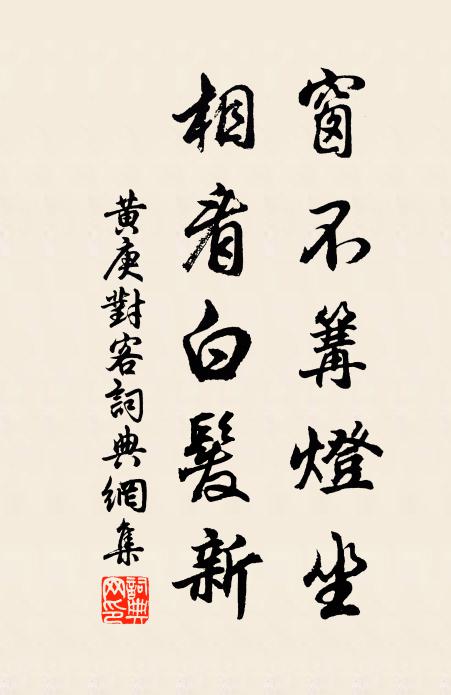 窗不篝燈坐
相看白髮新
黃庚對客詞典網集
詞典網印